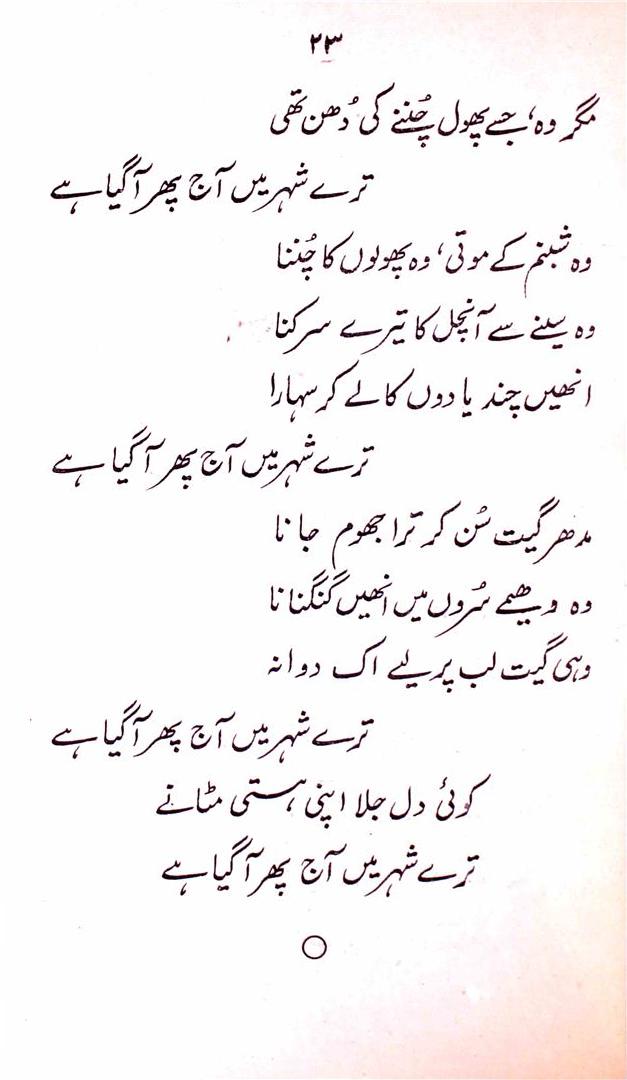 ۲۳
مگر وہ، جسے پھول چُننے کی دُھن تھی
ترے شہر میں آج پھر آ گیا ہے
وہ شبنم کے موتی، وہ پھولوں کا چُننا
وہ سینے سے آنچل کا تیرے سرکنا
انھیں چند یادوں کا لے کر سہارا
ترے شہر میں آج پھر آ گیا ہے
مدھر گیت سُن کر ترا جھوم جانا
وہ دھیمے سُروں میں انھیں گنگنانا
وہی گیت لب پر لیے اک دوانہ
ترے شہر میں آج پھر آ گیا ہے
کوئی دل جلا اپنی ہستی مٹانے
ترے شہر میں آج پھر آ گیا ہے